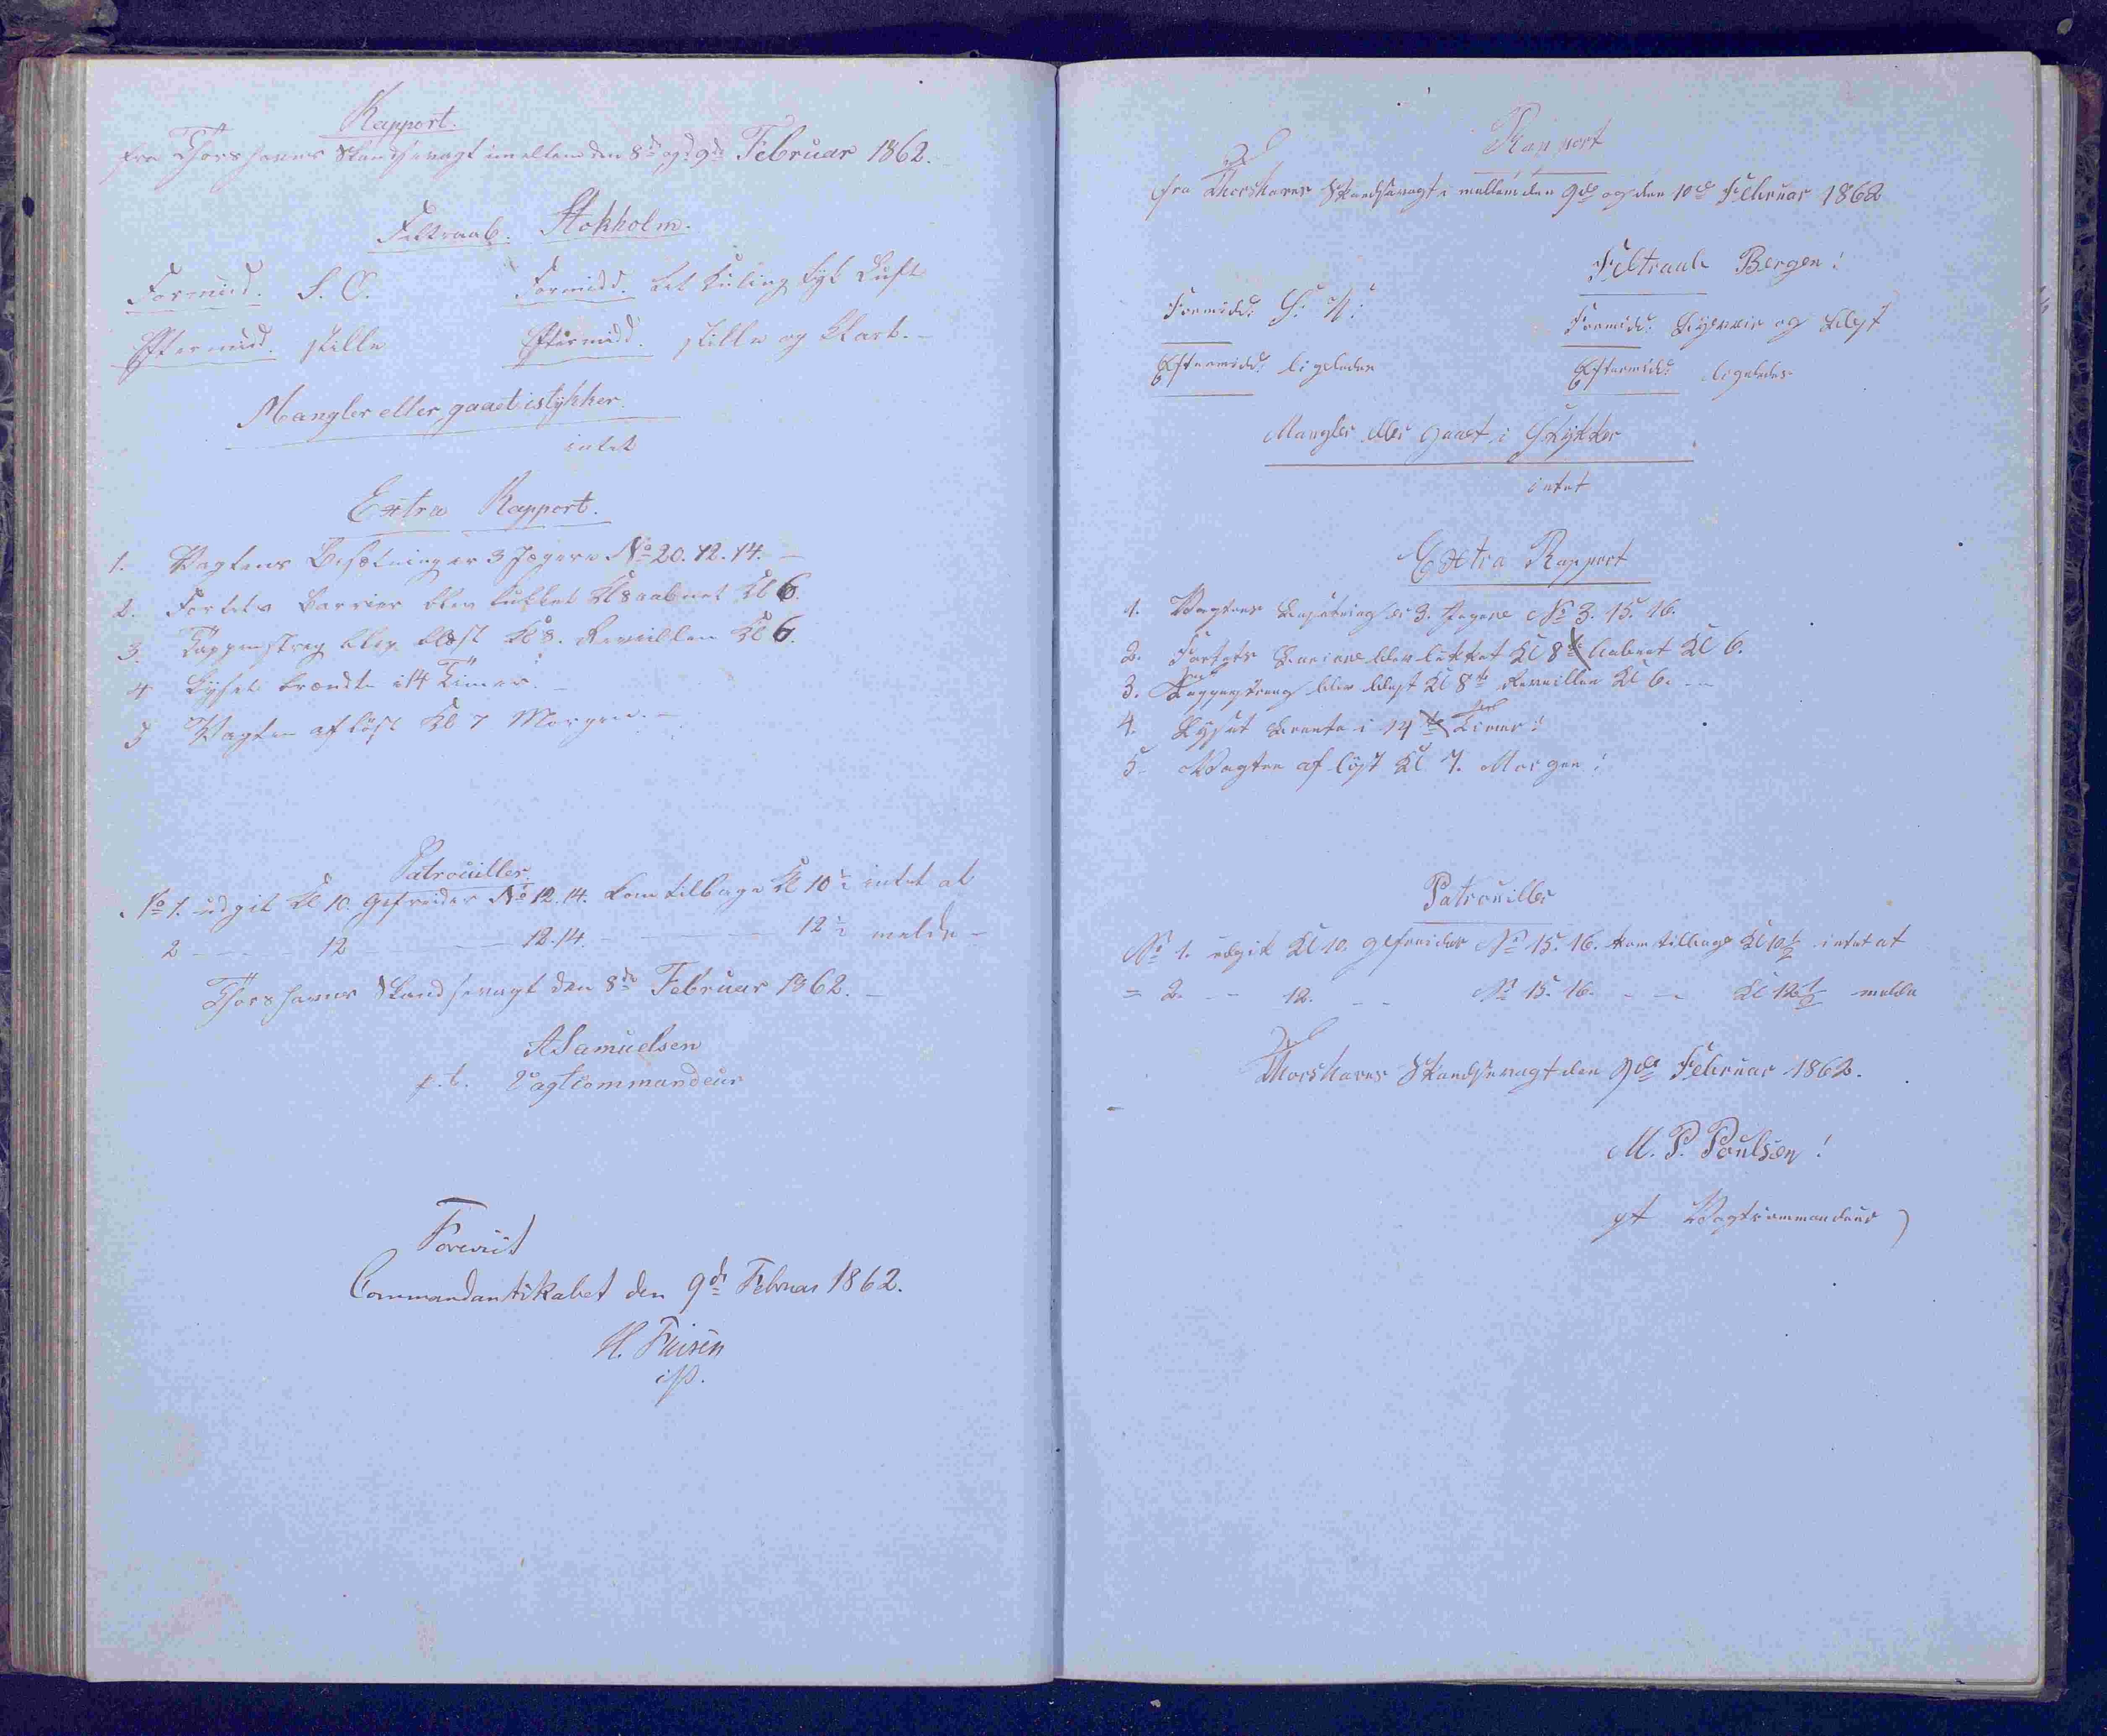 Rapport.
fra Thorshavns Skandsevagt imellem den 8de og 9de Februar 1862.
Feltraab. Stokholm.
Formid. S. O. Formidd. Let Kuling tyk Luft
Eftermid. stille Eftermidd. stille og klart. -
Mangler eller gaaet istykker.
intet
Extra Rapport.
1. Vagtens Besætning er 3 Jægere No 20. 12. 14. -
2. Fortets Barrier blev lukket Kl 8 aabnet Kl 6.
3. Tappenstreg blev blæst Kl 8. Reveillen Kl 6.
4 Lyset brændte i 14 Timer. -
5 Vagten afløst Kl 7 Morgen. -
Patrouiller.
No 1. udgik Kl 10. Gefreider No 12. 14. kom tilbage Kl 10½ intet at
2 - - - 12 - - - 12. 14. - - - 12½ melde -
Thorshavns Skandsevagt den 8de Februar 1862. -
A Samuelsen
p. t. Vagtcommandeur
Foreviist
Commandantskabet den 9de Februar 1862.
Rapport
fra Thorshavns Skandsevagt i mellem den 9de og den 10de Februar 1862
Feltraab Bergen!
Formidd: Formidd: og blæst
Eftermidd: ligeledes Eftermidd: ligeledes
Mangler eller gaaet i Stykker
intet
Extra Rapport
1. Vagtens Besætning er 3. Jægere No 3. 15. 16.
2. Fortets Bariere blev lukket Kl 8 Aabnet Kl 6.
3. Tappenstreg blev blæst Kl 8te Reveillen Kl 6. -
4. Lyset brente i 14 Timer!
5. Vagten af løst Kl. 7. Morgen!
Patrouiller
No 1. udgik Kl 10. gefreider No 15. 16. kom tilbage Kl 10½ intet at
= 2. - - 12. - - No 15. 16. - - Kl 12½ melde
Thorshavns Skandsevagt den 9de Februar 1862.
M. P. Poulsen!
pt Vagtcommandeur